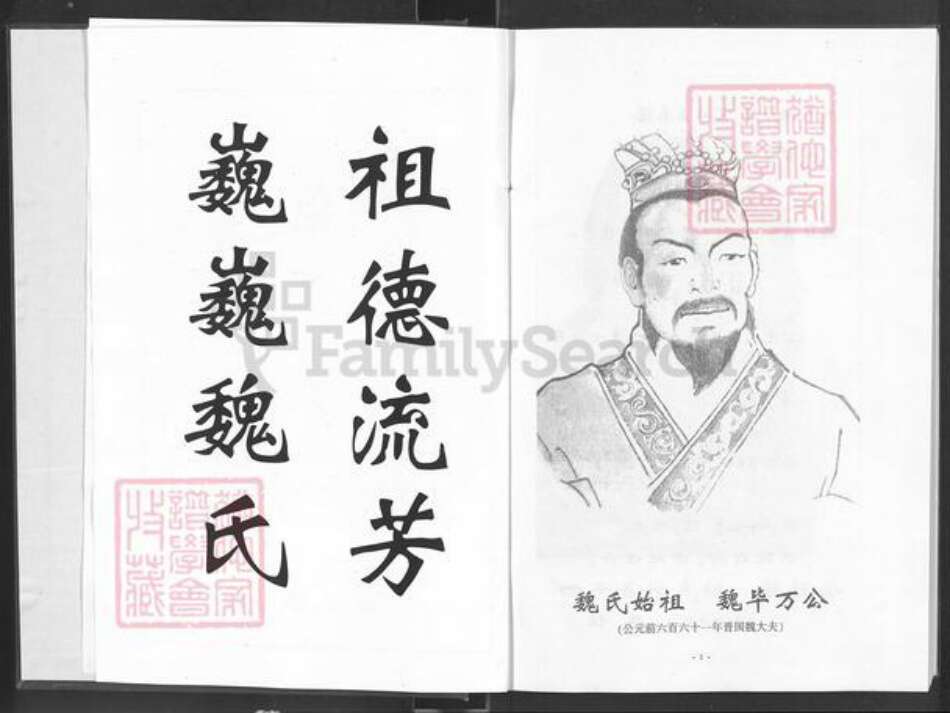 祖德流芳
巍巍魏氏
FamilySearch
猶他家
譜學會
收藏
猶他家
譜學會
收藏
魏氏始祖 魏毕万公
(公元前六百六十一年晋国魏大夫)
- 1 -